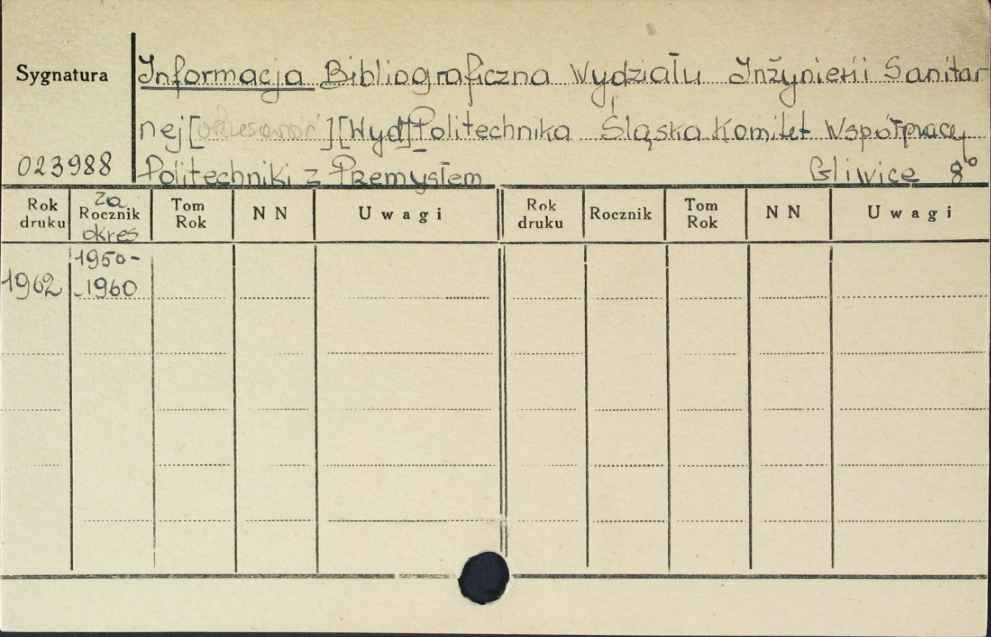 Sygnatura
Informacja Bibliograficzna Wydziału Inżynierii Sanitar
nej [ ] [Wyd] Politechnika Śląska Komitet Współpracy
023988 Politechniki z Przemysłem Gliwice 8°
Rok druku za Rocznik okres Tom Rok NN Uwagi Rok druku Rocznik Tom Rok NN Uwagi
1962 1950-
1960